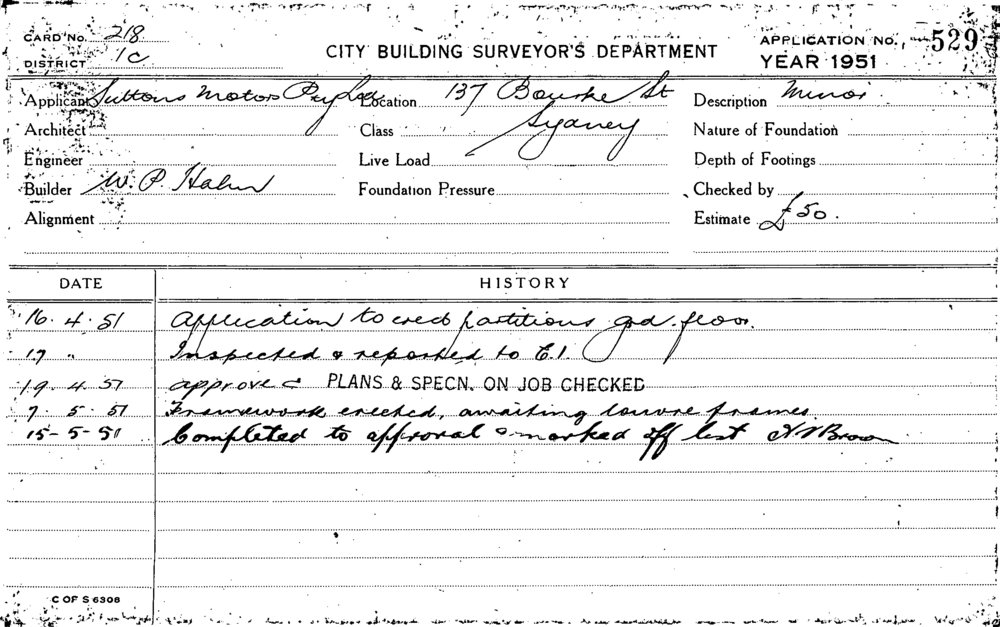 CARD No. 218
DISTRICT 1C
CITY BUILDING SURVEYOR'S DEPARTMENT
APPLICATION No. 529
YEAR 1951
Applicant Suttons Motors Pty Ltd Location 137 Bourke St Description Minor
Architect Class Sydney Nature of Foundation
Engineer Live Load Depth of Footings
Builder W. P. Hahn Foundation Pressure Checked by
Alignment Estimate £50.
DATE HISTORY
16. 4. 51 Application to erect partitions grd. floor.
17 " Inspected & reported to E.I.
19. 4. 51 approved PLANS & SPECN. ON JOB CHECKED
7. 5. 51 Framework erected, awaiting louvre frames.
15-5-51 Completed to approval & marked off list Brown
C OF S 6308